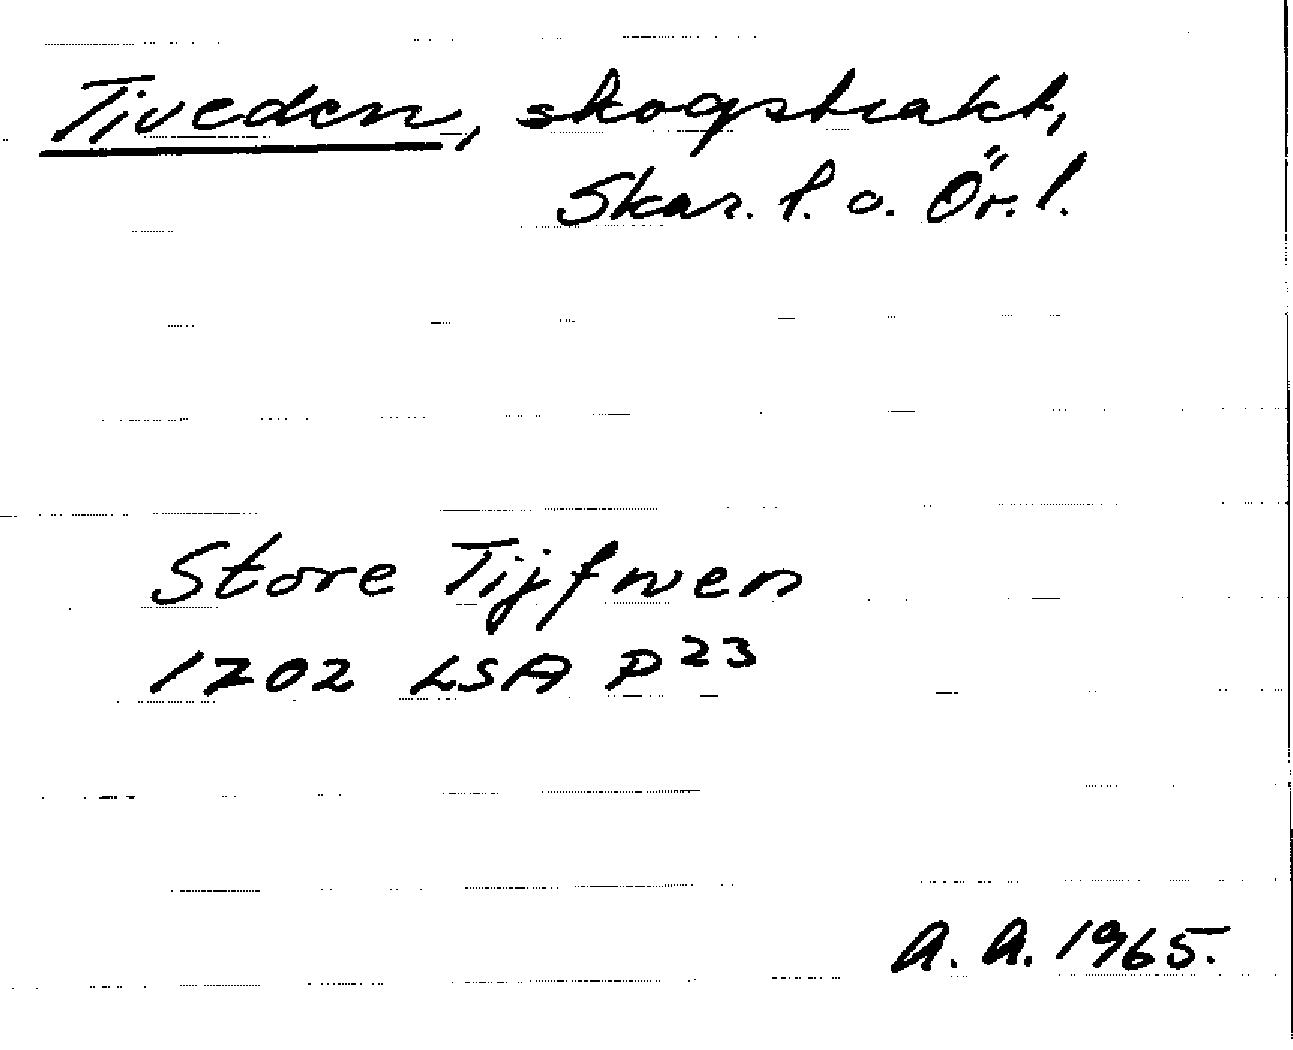 Tiveden, skogstrakt,
Skar. l. o. Ör. l.
Store Tijfwen
1702 LSA P23
A. A. 1965.